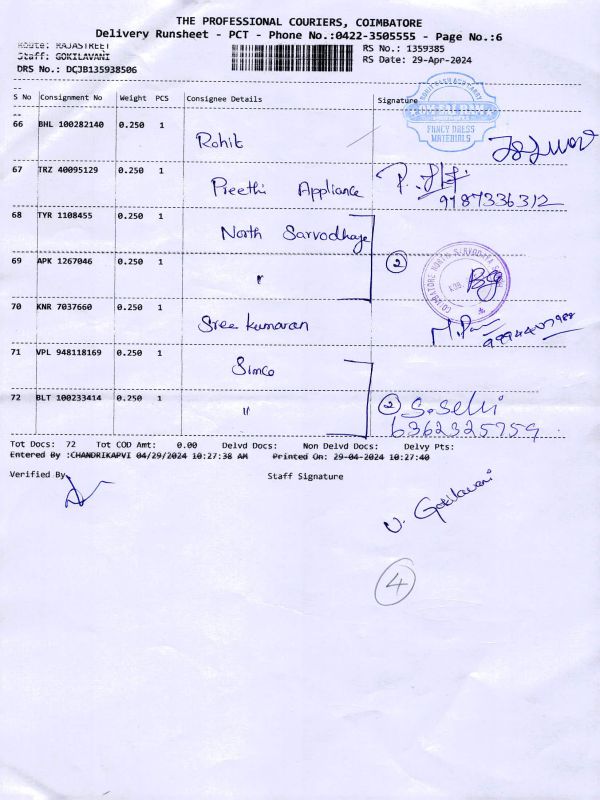 THE PROFESSIONAL COURIERS, COIMBATORE
Delivery Runsheet - PCT - Phone No.:0422-3505555 - Page No.:6
Route: RAJASTREET
RS No.: 1359385
Staff: GOKILAVANI
RS Date: 29-Apr-2024
DRS No.: DCJB135938506
S No Consignment No Weight PCS Consignee Details Signature
66 BHL 100282140 0.250 1 Rohit
FANCY DRESS
MATERIALS
67 TRZ 40095129 0.250 1 Preethi Appliance
9187336312
68 TYR 1108455 0.250 1 North Sarvodhaye
69 APK 1267046 0.250 1 "
2
70 KNR 7037660 0.250 1 Sree kumaran
71 VPL 948118169 0.250 1 Simco
72 BLT 100233414 0.250 1 "
2 S. Selvi
6362325759
Tot Docs: 72 Tot COD Amt: 0.00 Delvd Docs: Non Delvd Docs: Delvy Pts:
Entered By :CHANDRIKAPVI 04/29/2024 10:27:38 AM Printed On: 29-04-2024 10:27:40
Verified By Staff Signature
V. Gokilavani
4